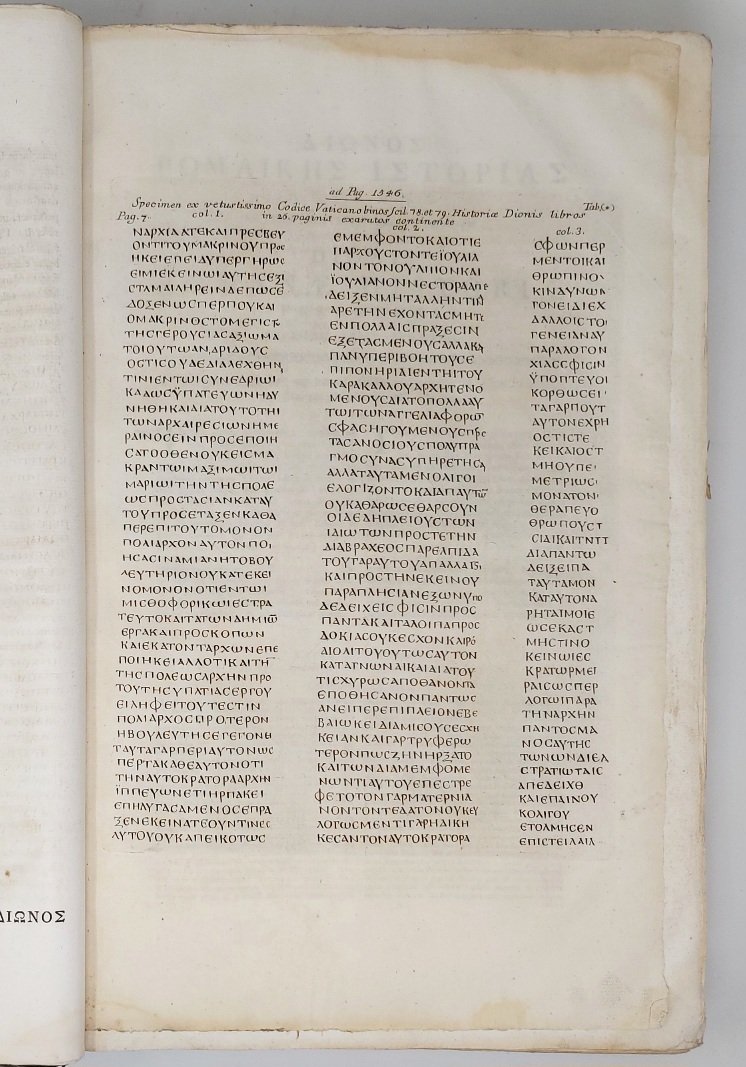 ΔΙΩΝΟΣ
ad Pag. 1346.
Tab(*)
Specimen ex vetustissimo Codice Vaticano binos scil. 78. et 79. Historiæ Dionis libros
Pag. 7. col. 1. in 26. paginis exaratos continente
col. 2.
col. 3.
ΝΑΡΧΙΑΤΕΚΑΙΠΡΕϹΒΕΥ
ΟΝΤΙΤΟΥΜΑΚΡΙΝΟΥΠΡΟϹ
ΗΚΕΙΕΠΕΙΔΥΠΕΡΓΗΡΩϹ
ΕΙΜΙΕΚΕΙΝΩΙΑΥΤΗϹΕΞΙ
ϹΤΑΜΑΙΛΗΡΕΙΝΔΕΠΩϹΕ
ΔΟΞΕΝΩϹΠΕΡΠΟΥΚΑΙ
ΟΜΑΚΡΙΝΟϹΤΟΜΕΓΙϹΤ
ΤΗϹΓΕΡΟΥϹΙΑϹΑΞΙΩΜΑ
ΤΟΙΟΥΤΩΑΝΔΡΙΔΟΥϹ
ΟϹΤΙϹΟΥΔΕΔΙΑΛΕΧΘΗΝ
ΤΙΝΙΕΝΤΩΙϹΥΝΕΔΡΙΩΙ
ΚΑΛΩϹΫΠΑΤΕΥΩΝΗΔΥ
ΝΗΘΗΚΑΙΔΙΑΤΟΥΤΟΤΗΙ
ΤΩΝΑΡΧΑΙΡΕϹΙΩΝΗΜΕ
ΡΑΙΝΟϹΕΙΝΠΡΟϹΕΠΟΙΗ
ϹΑΤΟΟΘΕΝΟΥΚΕΙϹΜΑ
ΚΡΑΝΤΩΙΜΑΞΙΜΩΙΤΩΙ
ΜΑΡΙΩΙΤΗΝΤΗϹΠΟΛΕ
ΩϹΠΡΟϹΤΑϹΙΑΝΚΑΤΑΥ
ΤΟΥΠΡΟϹΕΤΑΞΕΝΚΑΘΑ
ΠΕΡΕΠΙΤΟΥΤΟΜΟΝΟΝ
ΠΟΛΙΑΡΧΟΝΑΥΤΟΝΠΟΙ
ΗϹΑϹΙΝΑΜΙΑΝΗΤΟΒΟΥ
ΛΕΥΤΗΡΙΟΝΟΥΚΑΤΕΚΕΙ
ΝΟΜΟΝΟΝΟΤΙΕΝΤΩΙ
ΜΙϹΘΟΦΟΡΙΚΩΙΕϹΤΡΑ
ΤΕΥΤΟΚΑΙΤΑΤΩΝΔΗΜΙΩ
ΕΡΓΑΚΑΙΠΡΟϹΚΟΠΩΝ
ΚΑΙΕΚΑΤΟΝΤΑΡΧΩΝΕΠΕ
ΠΟΙΗΚΕΙΑΛΛΟΤΙΚΑΙΤΗ
ΤΗϹΠΟΛΕΩϹΑΡΧΗΝΠΡΟ
ΤΟΥΤΗϹΥΠΑΤΙΑϹΕΡΓΟΥ
ΕΙΛΗΦΕΙΤΟΥΤΕϹΤΙΝ
ΠΟΛΙΑΡΧΟϹΠΡΟΤΕΡΟΝ
ΗΒΟΥΛΕΥΤΗϹΕΓΕΓΟΝΕΙ
ΤΑΥΤΑΓΑΡΠΕΡΙΑΥΤΟΝΩϹ
ΠΕΡΤΑΚΑΘΕΑΥΤΟΝΟΤΙ
ΤΗΝΑΥΤΟΚΡΑΤΟΡΑΑΡΧΗΝ
ΪΠΠΕΥΩΝΕΤΙΗΡΠΑΚΕΙ
ΕΠΗΛΥΓΑϹΑΜΕΝΟϹΕΠΡΑ
ΞΕΝΕΚΕΙΝΑΤΕΟΥΝΤΙΝΕϹ
ΑΥΤΟΥΟΥΚΑΠΕΙΚΟΤΩϹ
ΕΜΕΜΦΟΝΤΟΚΑΙΟΤΙΕ
ΠΑΡΧΟΥϹΤΟΝΤΕΪΟΥΛΙΑ
ΝΟΝΤΟΝΟΥΛΠΙΟΝΚΑΙ
ΪΟΥΛΙΑΝΟΝΝΕϹΤΟΡΑΑΠΕ
ΔΕΙΞΕΝΜΗΤΑΛΛΗΝΤΙΝ
ΑΡΕΤΗΝΕΧΟΝΤΑϹΜΗΤ
ΕΝΠΟΛΛΑΙϹΠΡΑΞΕϹΙΝ
ΕΞΕΤΑϹΜΕΝΟΥϹΑΛΛΑΚΑ
ΠΑΝΥΠΕΡΙΒΟΗΤΟΥϹΕ
ΠΙΠΟΝΗΡΙΑΙΕΝΤΗΙΤΟΥ
ΚΑΡΑΚΑΛΛΟΥΑΡΧΗΓΕΝΟ
ΜΕΝΟΥϹΔΙΑΤΟΠΟΛΛΑΑΥ
ΤΩΙΤΩΝΑΓΓΕΛΙΑΦΟΡΩ
ϹΦΑϹΗΓΟΥΜΕΝΟΥϹΠΡΟϹ
ΤΑϹΑΝΟϹΙΟΥϹΠΟΛΥΠΡΑ
ΓΜΟϹΥΝΑϹΥΠΗΡΕΤΗϹΑ
ΑΛΛΑΤΑΥΤΑΜΕΝΟΛΙΓΟΙ
ΕΛΟΓΙΖΟΝΤΟΚΑΙΑΠΑΥΤΩ
ΟΥΚΑΘΑΡΩϹΕΘΑΡϹΟΥΝ
ΟΙΔΕΔΗΠΛΕΙΟΥϹΤΩΝ
ΙΔΙΩΤΩΝΠΡΟϹΤΕΤΗΝ
ΔΙΑΒΡΑΧΕΟϹΠΑΡΕΛΠΙΔΑ
ΤΟΥΓΑΡΑΥΤΟΥΑΠΑΛΛΑΓΗ
ΚΑΙΠΡΟϹΤΗΝΕΚΕΙΝΟΥ
ΠΑΡΑΠΛΗϹΙΑΝΕΞΩΝΥΠΟ
ΔΕΔΕΙΧΕΙϹΦΙϹΙΝΠΡΟϹ
ΠΑΝΤΑΚΑΙΤΑΛΟΙΠΑΠΡΟϹ
ΔΟΚΙΑϹΟΥΚΕϹΧΟΝΚΑΙΡΟ
ΔΙΟΛΙΓΟΥΟΥΤΩϹΑΥΤΟΝ
ΚΑΤΑΓΝΩΝΑΙΚΑΙΔΙΑΤΟΥ
ΤΙϹΧΥΡΩϹΑΠΟΘΑΝΟΝΤΑ
ΕΠΟΘΗϹΑΝΟΝΠΑΝΤΩϹ
ΑΝΕΙΠΕΡΕΠΙΠΛΕΙΟΝΕΒΕ
ΒΑΙΩΚΕΙΔΙΑΜΙϹΟΥϹΕϹΧΗ
ΚΕΙΑΝΚΑΙΓΑΡΤΡΥΦΕΡΩ
ΤΕΡΟΝΠΩϹΖΗΝΗΡΞΑΤΟ
ΚΑΙΤΩΝΔΙΑΜΕΜΦΟΜΕ
ΝΩΝΤΙΑΥΤΟΥΕΠΕϹΤΡΕ
ΦΕΤΟΤΟΝΓΑΡΜΑΤΕΡΝΙΑ
ΝΟΝΤΟΝΤΕΔΑΤΟΝΟΥΚΕΥ
ΛΟΓΩϹΜΕΝΤΙΓΑΡΗΔΙΚΗ
ΚΕϹΑΝΤΟΝΑΥΤΟΚΡΑΤΟΡΑ
ϹΦΩΝΠΕΡ
ΜΕΝΤΟΙΚΑΙ
ΘΡΩΠΙΝΟ
ΚΙΝΔΥΝΩΝ
ΓΟΝΕΙΔΙΕΧ
ΔΑΛΛΟΙϹΤΟ
ΓΕΝΕΙΑΝΑΥ
ΠΑΡΑΛΟΓΟΝ
ΧΙΑϹϹΦΙϹΙΝ
ΫΠΟΠΤΕΥΟΙ
ΚΟΡΘΩϹΕΙ
ΤΑΓΑΡΠΟΥΤ
ΑΥΤΟΝΕΧΡΗ
ΟϹΤΙϹΤΕ
ΚΕΙΚΑΙΟϹΤ
ΜΗΟΥΠΕ
ΜΕΤΡΙΩϹ
ΜΟΝΑΤΟΝ
ΘΕΡΑΠΕΥΟ
ΘΡΩΠΟΥϹΤ
ϹΙΑΙΚΑΙΤΝΤΤ
ΔΙΑΠΑΝΤΩ
ΔΕΙΞΕΙΠΑ
ΤΑΥΤΑΜΟΝ
ΚΑΤΑΥΤΟΝΑ
ΡΗΤΑΙΜΟΙΕ
ΩϹΕΚΑϹΤ
ΜΗϹΤΙΝΟ
ΚΕΙΝΩΙΕϹ
ΚΡΑΤΩΡΜΕΙ
ΡΑΙϹΩϹΠΕΡ
ΛΟΓΩΙΠΑΡΑ
ΤΗΝΑΡΧΗΝ
ΠΑΝΤΟϹΜΑ
ΝΟϹΑΥΤΗϹ
ΤΩΝΩΝΔΙΕΛ
ϹΤΡΑΤΙΩΤΑΙϹ
ΑΠΕΔΕΙΧΘ
ΚΑΙΕΠΑΙΝΟΥ
ΚΟΛΙΓΟΥ
ΕΤΟΛΜΗϹΕΝ
ΕΠΙϹΤΕΙΛΑΙΑ